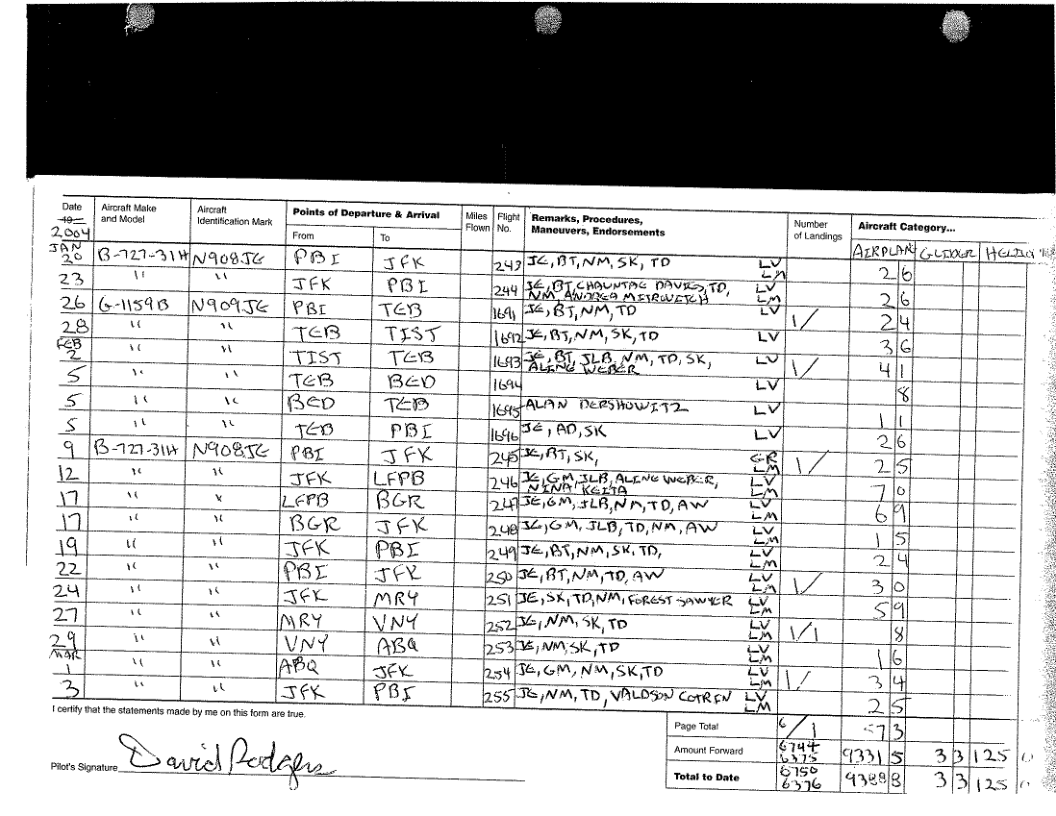 Date Aircraft Make and Model Aircraft Identification Mark Points of Departure & Arrival Miles Flown Flight No. Remarks, Procedures, Maneuvers, Endorsements Number of Landings Aircraft Category...
19 2004 From To AIRPLANE GLIDER
JAN 20 B-727-31H N908JE PBI JFK 243 JE, BT, NM, SK, TD LV LM 2 6
23 " " JFK PBI 244 JE, BT, CHAUNTAE DAVIES, TD, NM, ANDREA LV LM 2 6
26 G-1159B N909JE PBI TEB 1691 JE, BT, NM, TD LV 1/ 2 4
28 " " TEB TIST 1692 JE, BT, NM, SK, TD LV 3 6
FEB 2 " " TIST TEB 1693 JE, BT, JLB, NM, TD, SK, ALINE WEBER LV 1/ 4 1
5 " " TEB BED 1694 LV 8
5 " " BED TEB 1695 ALAN DERSHOWITZ LV 1 1
5 " " TEB PBI 1696 JE, AD, SK LV 2 6
9 B-727-31H N908JE PBI JFK 245 JE, BT, SK, LM 1/ 2 5
12 " " JFK LFPB 246 JE, GM, JLB, ALINE WEBER, NINA KEITA LV LM 7 0
17 " " LFPB BGR 247 JE, GM, JLB, NM, TD, AW LV LM 6 9
17 " " BGR JFK 248 JE, GM, JLB, TD, NM, AW LV LM 1 5
19 " " JFK PBI 249 JE, BT, NM, SK, TD, LV LM 2 4
22 " " PBI JFK 250 JE, BT, NM, TD, AW LV LM 1/ 3 0
24 " " JFK MRY 251 JE, SK, TD, NM, FOREST SAWYER LV LM 5 9
27 " " MRY VNY 252 JE, NM, SK, TD LV LM 1/1 8
29 " " VNY ABQ 253 JE, NM, SK, TD LV LM 1 6
MAR 1 " " ABQ JFK 254 JE, GM, NM, SK, TD LV LM 1/ 3 4
3 " " JFK PBI 255 JE, NM, TD, VALDSON COTRIN LV LM 2 5
I certify that the statements made by me on this form are true.
Page Total 6/1 57 3
Amount Forward 6744 6375 9331 5 3 3 125
Pilot's Signature David Rodgers
Total to Date 6750 6376 9388 8 3 3 125